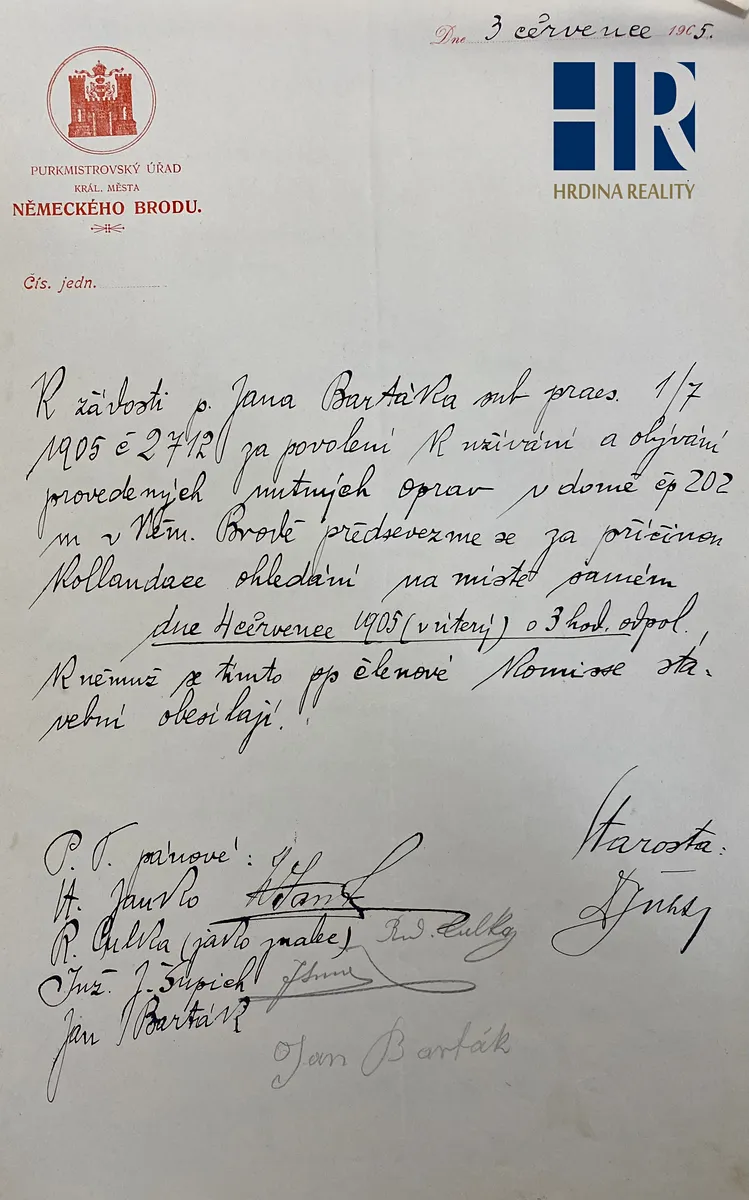 Dne 3 července 1905.
HR
HRDINA REALITY
PURKMISTROVSKÝ ÚŘAD
KRÁL. MĚSTA
NĚMECKÉHO BRODU.
Čís. jedn.
K žádosti p. Jana Bartáka sub praes. 1/7
1905 č 2712 za povolení k užívání a obývání
provedených nutných oprav v domě čp 202
m v Něm. Brodě předsevezme se za příčinou
Kollaudace ohledání na místě samém
dne 4 července 1905 (v úterý) o 3 hod. odpol.,
K němuž se tímto pp členové Komisse sta-
vební obesílají.
Starosta:
P. T. pánové:
H. Janko
R. Culka (jako znalec) Rud. Culka
Inž. J. Šupich
Jan Barták
Jan Barták